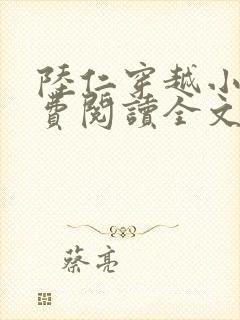 陸仁穿越小
費閱讀全文
蔡亮